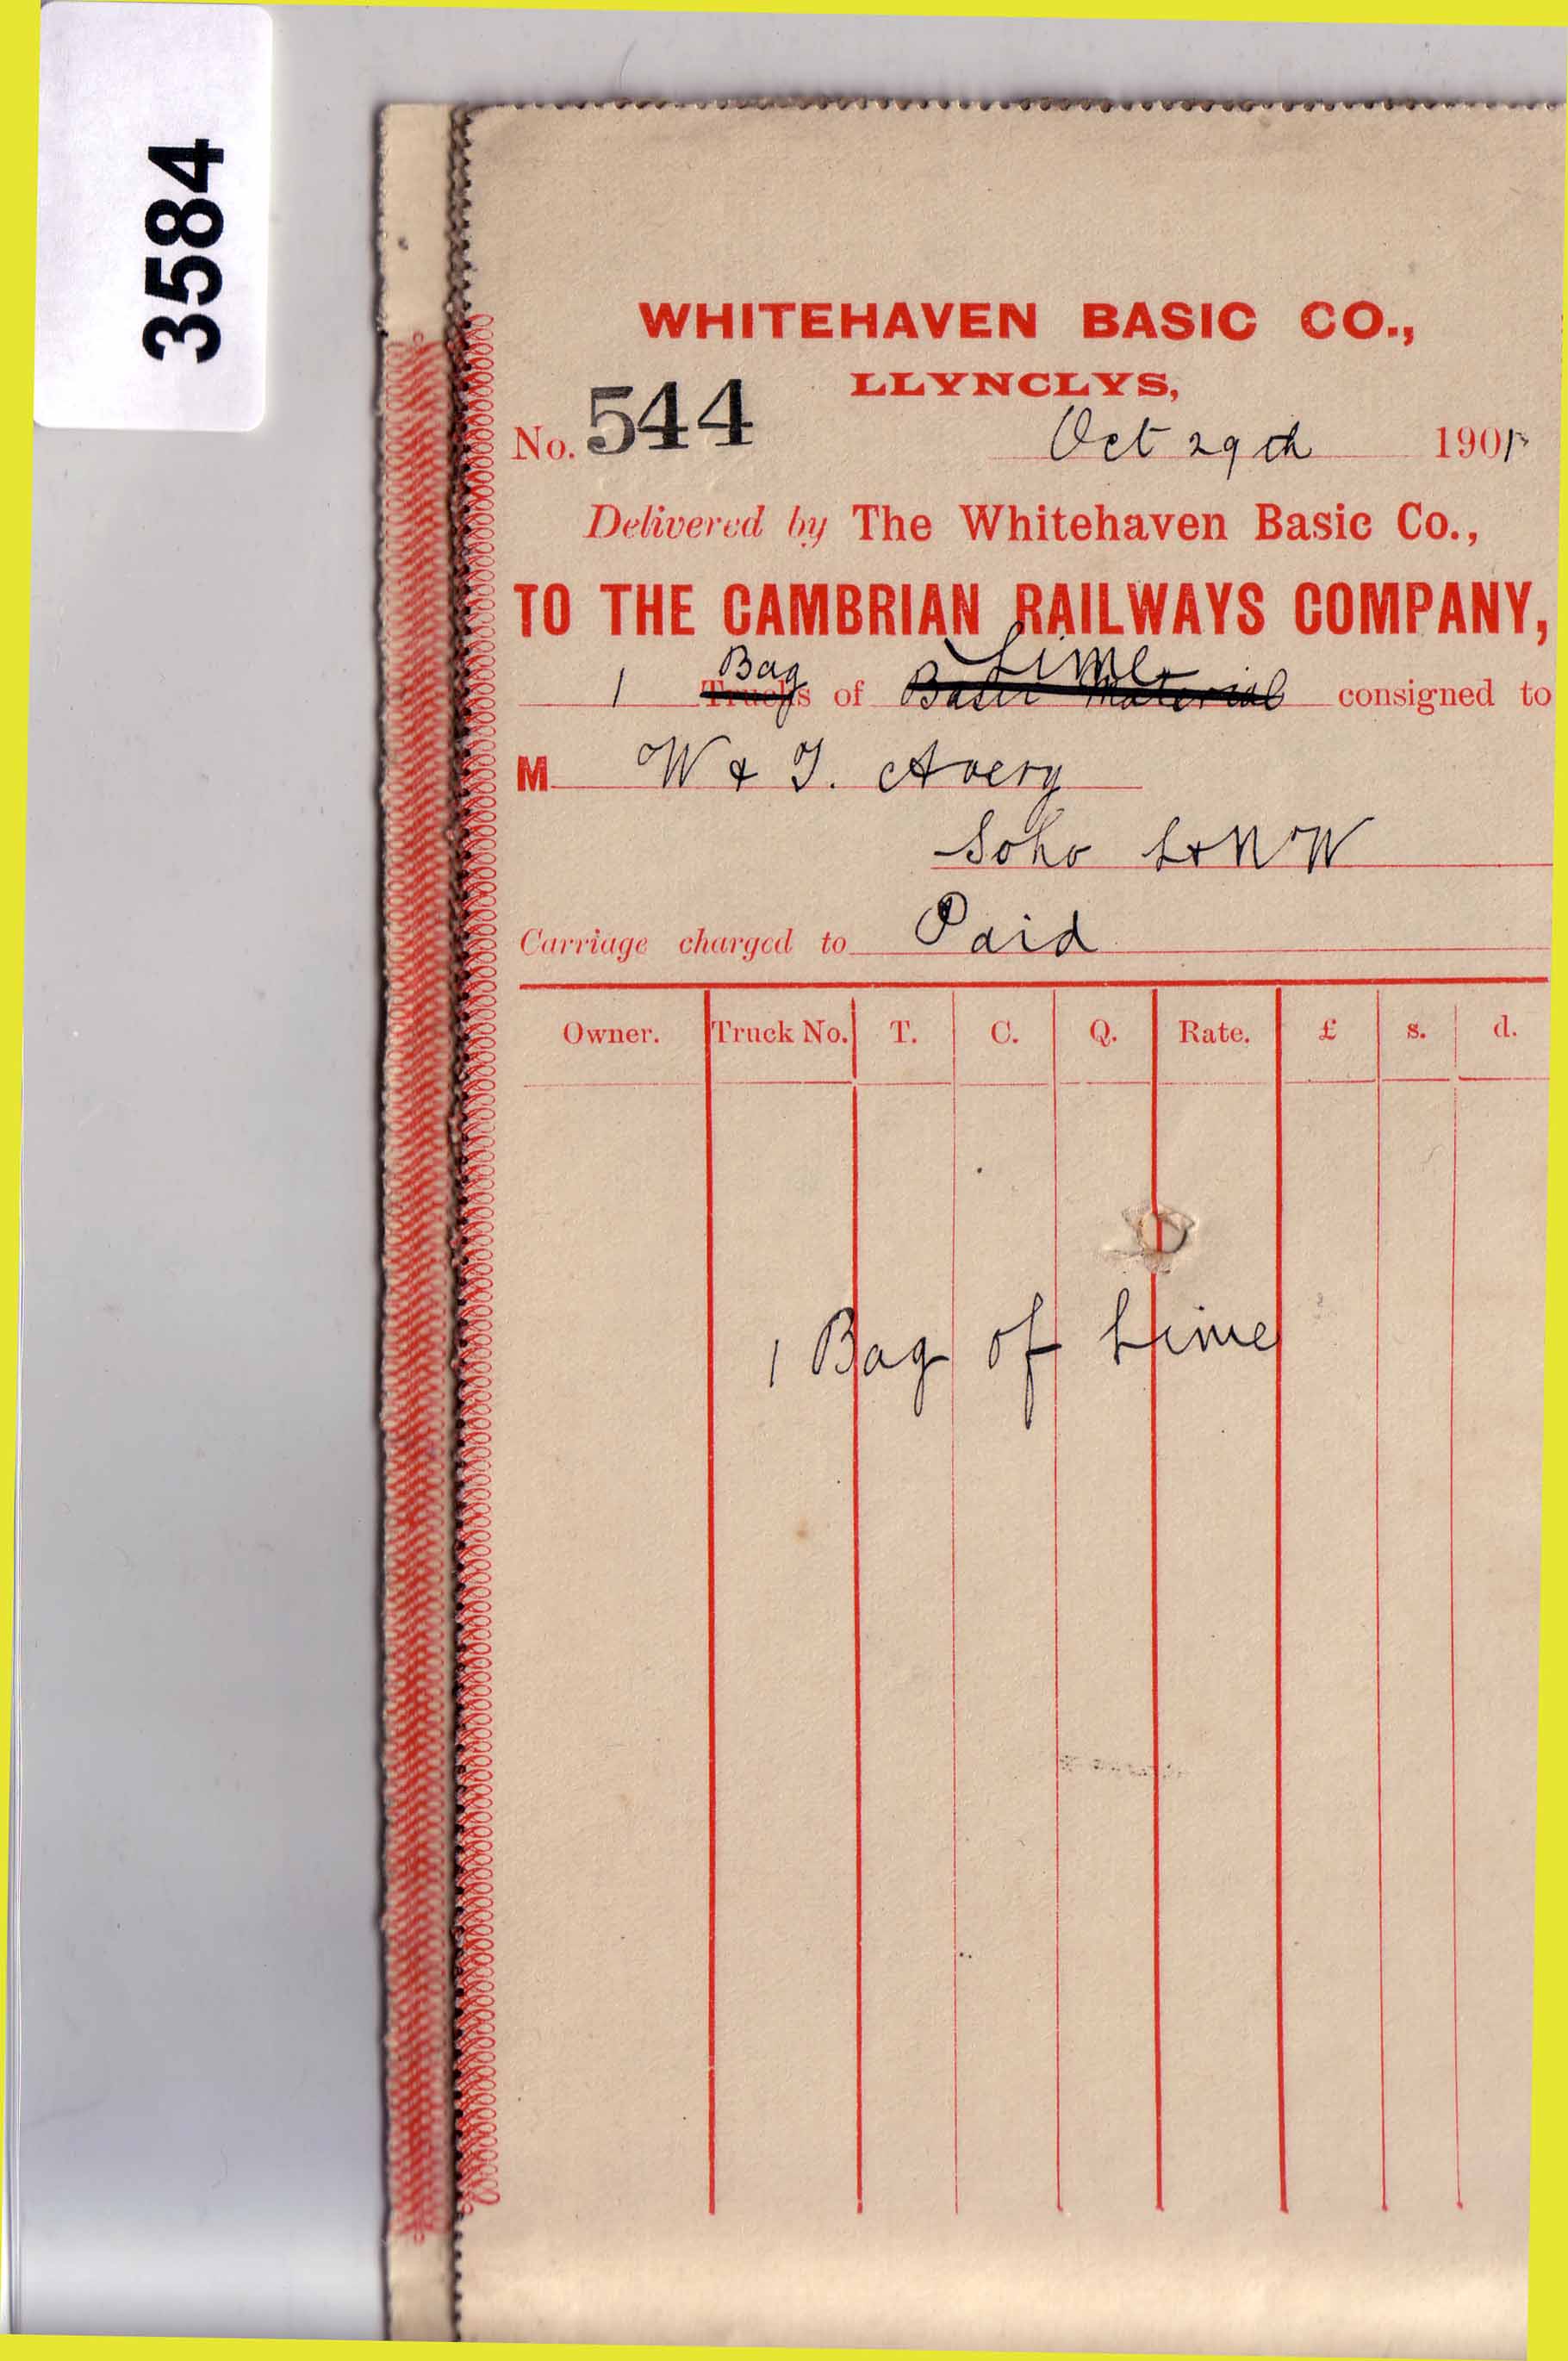 3584
WHITEHAVEN BASIC CO.,
LLYNCLYS,
No. 544 Oct 29th 1901
Delivered by The Whitehaven Basic Co.,
TO THE CAMBRIAN RAILWAYS COMPANY,
Bag Lime
1 Trucks of Basic Material consigned to
M W & T. Avery
Soho L&NW
Carriage charged to Paid
Owner. Truck No. T. C. Q. Rate. £ s. d.
1 Bag of Lime